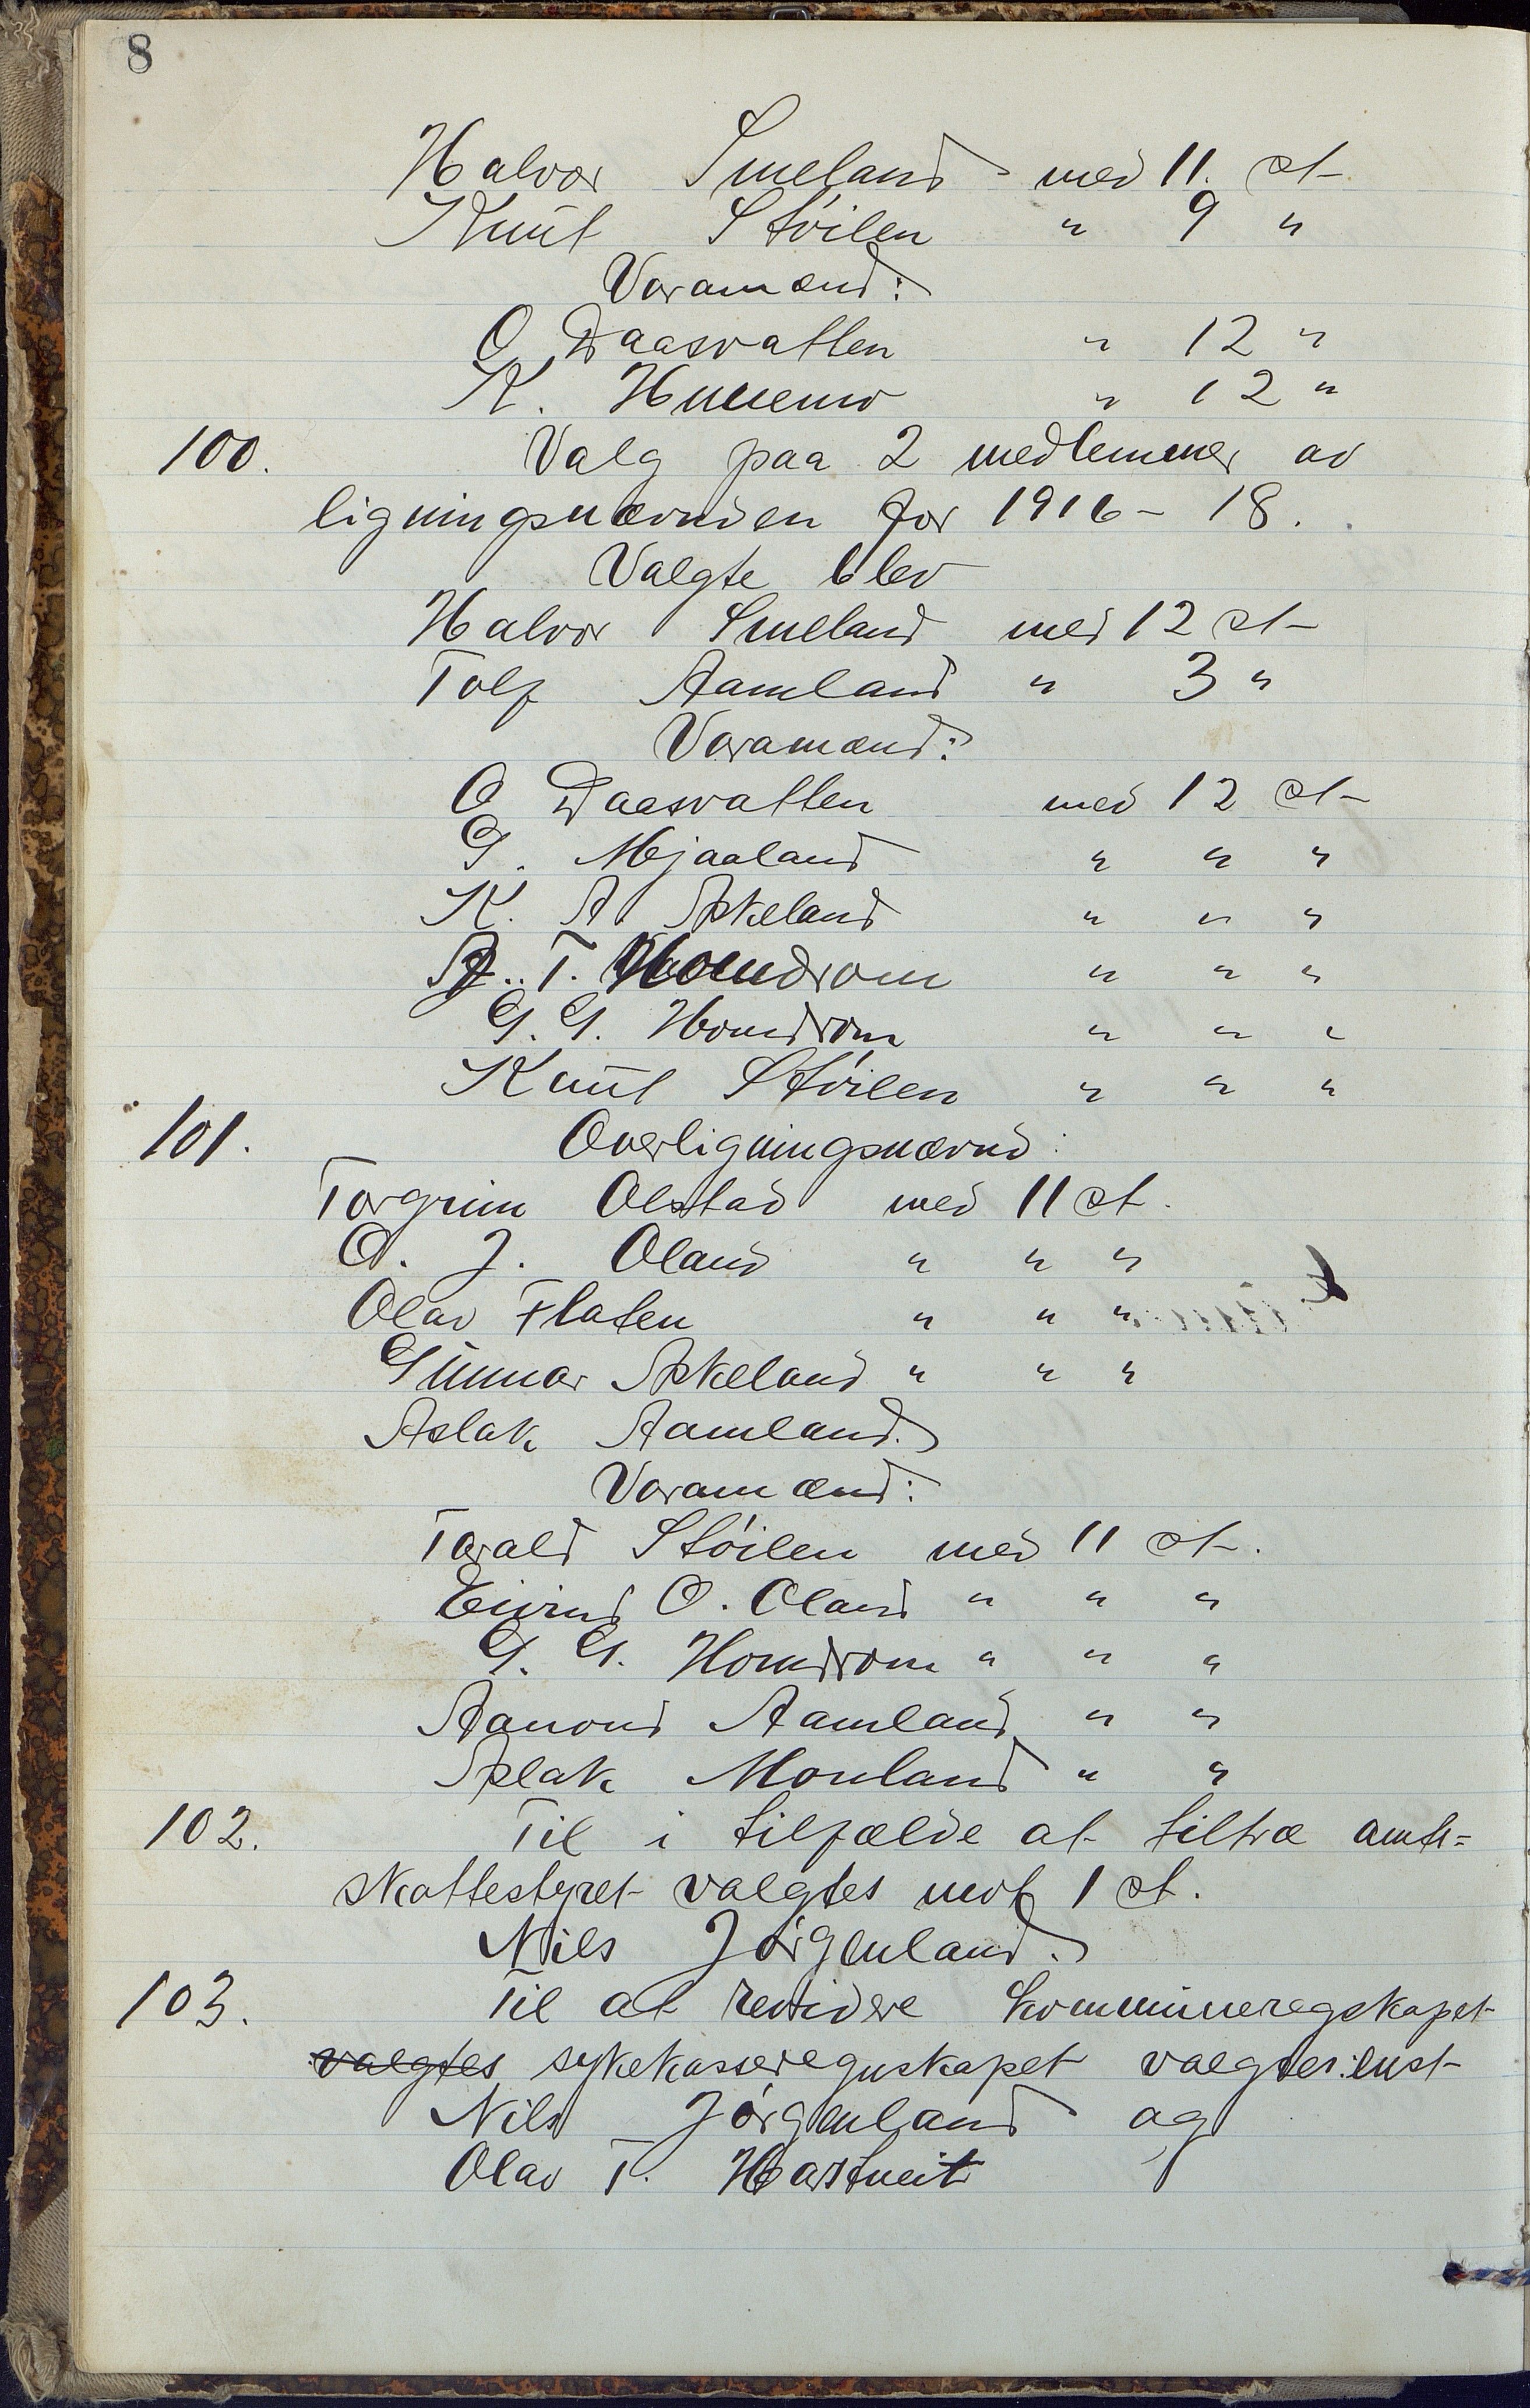 8
Halvor Smeland med 11. st
Knut Støilen " 9 "
Varamænd:
O Daasvatten " 12 "
K. Hunemo " 12 "
100. Valg paa 2 medlemmer av
ligningsnævnden for 1916 - 18.
Valgte blev
Halvor Smeland med 12 st
Tolf Aamland " 3 "
Varamænd:
O Daasvatten med 12 st
G. Mjaaland " " "
K. A Askeland " " "
T. Homdrom " " "
G. G. Homdrom " " "
Knut Støilen " " "
101. Overligningsnævnd:
Torgrim Olstad med 11 st.
O. J. Oland " " "
Olav Flaten " " "
Gunnar Askeland " " "
Aslak Aamland.
Varamænd:
Tarald Støilen med 11 st.
Eivind O. Oland " " "
G. G. Homdrom " " "
Aanond Aamland " "
Aslak Monland " "
102. Til i tilfælde at tiltræ amts=
skattestyret valgtes mot 1 st.
Nils Jørgenland.
103. Til at revidere kommuneregskapet
valgtes sykekasseregnskapet valgtes: enst
Nils Jørgenland og
Olav T. Hastveit